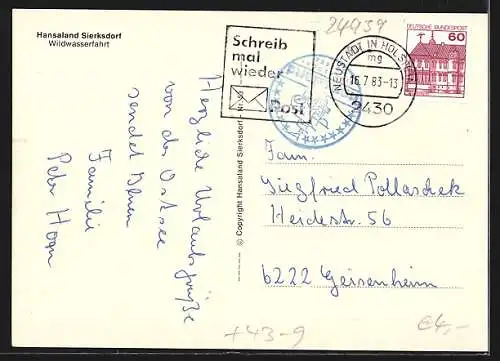 Hansaland Sierksdorf
Wildwasserfahrt
Herzliche Urlaubsgrüße
von der Ostsee
sendet Ihnen
Familie
Peter
© Copyright Hansaland Sierksdorf - Nr.
24439
Schreib
mal
wieder
Post
NEUSTADT IN HOLSTEIN
mg
16.7.83-13
2430
DEUTSCHE BUNDESPOST
60
Fam.
Siegfried Pollaschek
Heidestr. 56
6222 Geisenheim
+43-9
€4,-